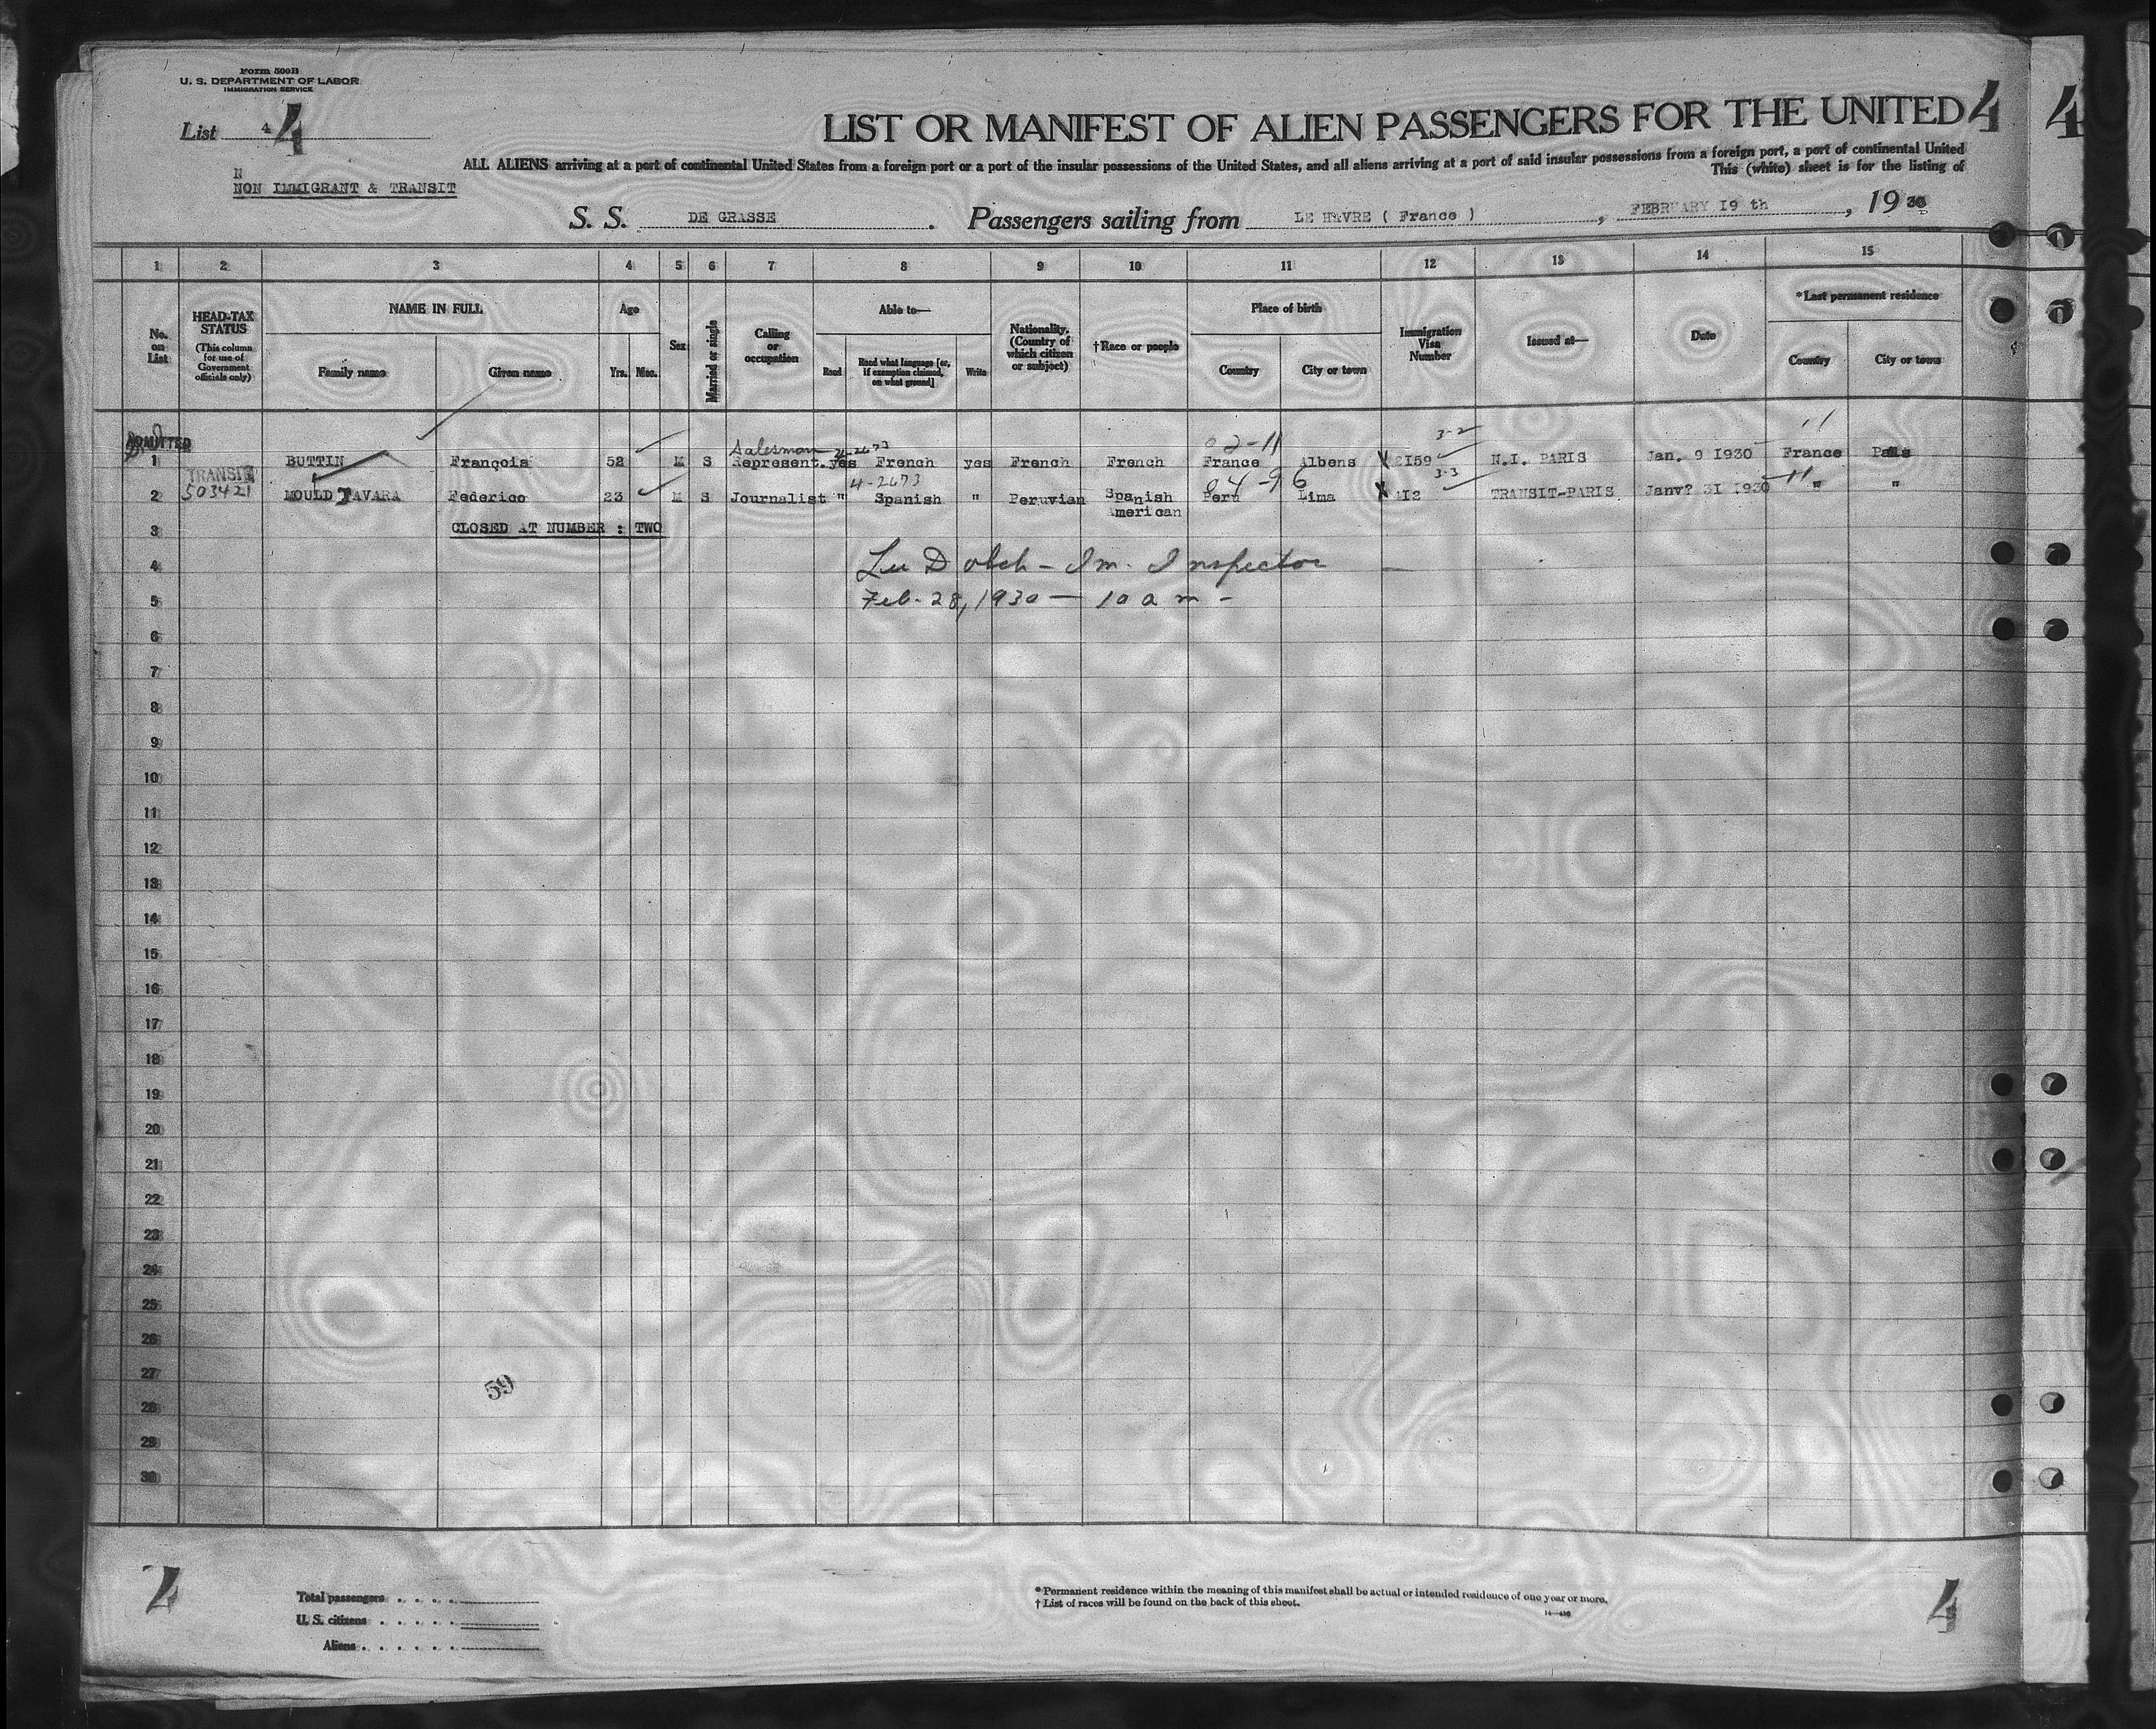 Form 500B
U. S. DEPARTMENT OF LABOR
IMMIGRATION SERVICE
List 4 4
LIST OR MANIFEST OF ALIEN PASSENGERS FOR THE UNITED 4 4
ALL ALIENS arriving at a port of continental United States from a foreign port or a port of the insular possessions of the United States, and all aliens arriving at a port of said insular possessions from a foreign port, a port of continental United
This (white) sheet is for the listing of
N
NON IMMIGRANT & TRANSIT
S. S. DE GRASSE . Passengers sailing from LE HAVRE ( France ) , FEBRUARY I9 th , 19 30
1 2 3 4 5 6 7 8 9 10 11 12 13 14 15
No. on List
HEAD-TAX STATUS
(This column for use of Government officials only)
NAME IN FULL
Family name Given name
Age
Yrs. Mos.
Sex
Married or single
Calling or occupation
Able to—
Read Read what language [or, if exemption claimed, on what ground] Write
Nationality. (Country of which citizen or subject)
†Race or people
Place of birth
Country City or town
Immigration Visa Number
Issued at—
Date
*Last permanent residence
Country City or town
ADMITTED
Salesman 02-11 3-2
1 BUTTIN François 52 M S Represent. yes French yes French French France Albens 2I59 N.I. PARIS Jan. 9 I930 France Paris
TRANSIT
503421
4-2673 04-96 3-3
2 MOULD TAVARA Federico 23 M S Journalist " Spanish " Peruvian Spanish American Peru Lima 4I2 TRANSIT-PARIS Janv? 3I I930 " "
3 CLOSED AT NUMBER : TWO
4 Im. Inspector
5 Feb. 28, 1930 — 10 a m -
6
7
8
9
10
11
12
13
14
15
16
17
18
19
20
21
22
23
24
25
26
27
59
28
29
30
4
Total passengers
U. S. citizens
Aliens
*Permanent residence within the meaning of this manifest shall be actual or intended residence of one year or more.
†List of races will be found on the back of this sheet.
4